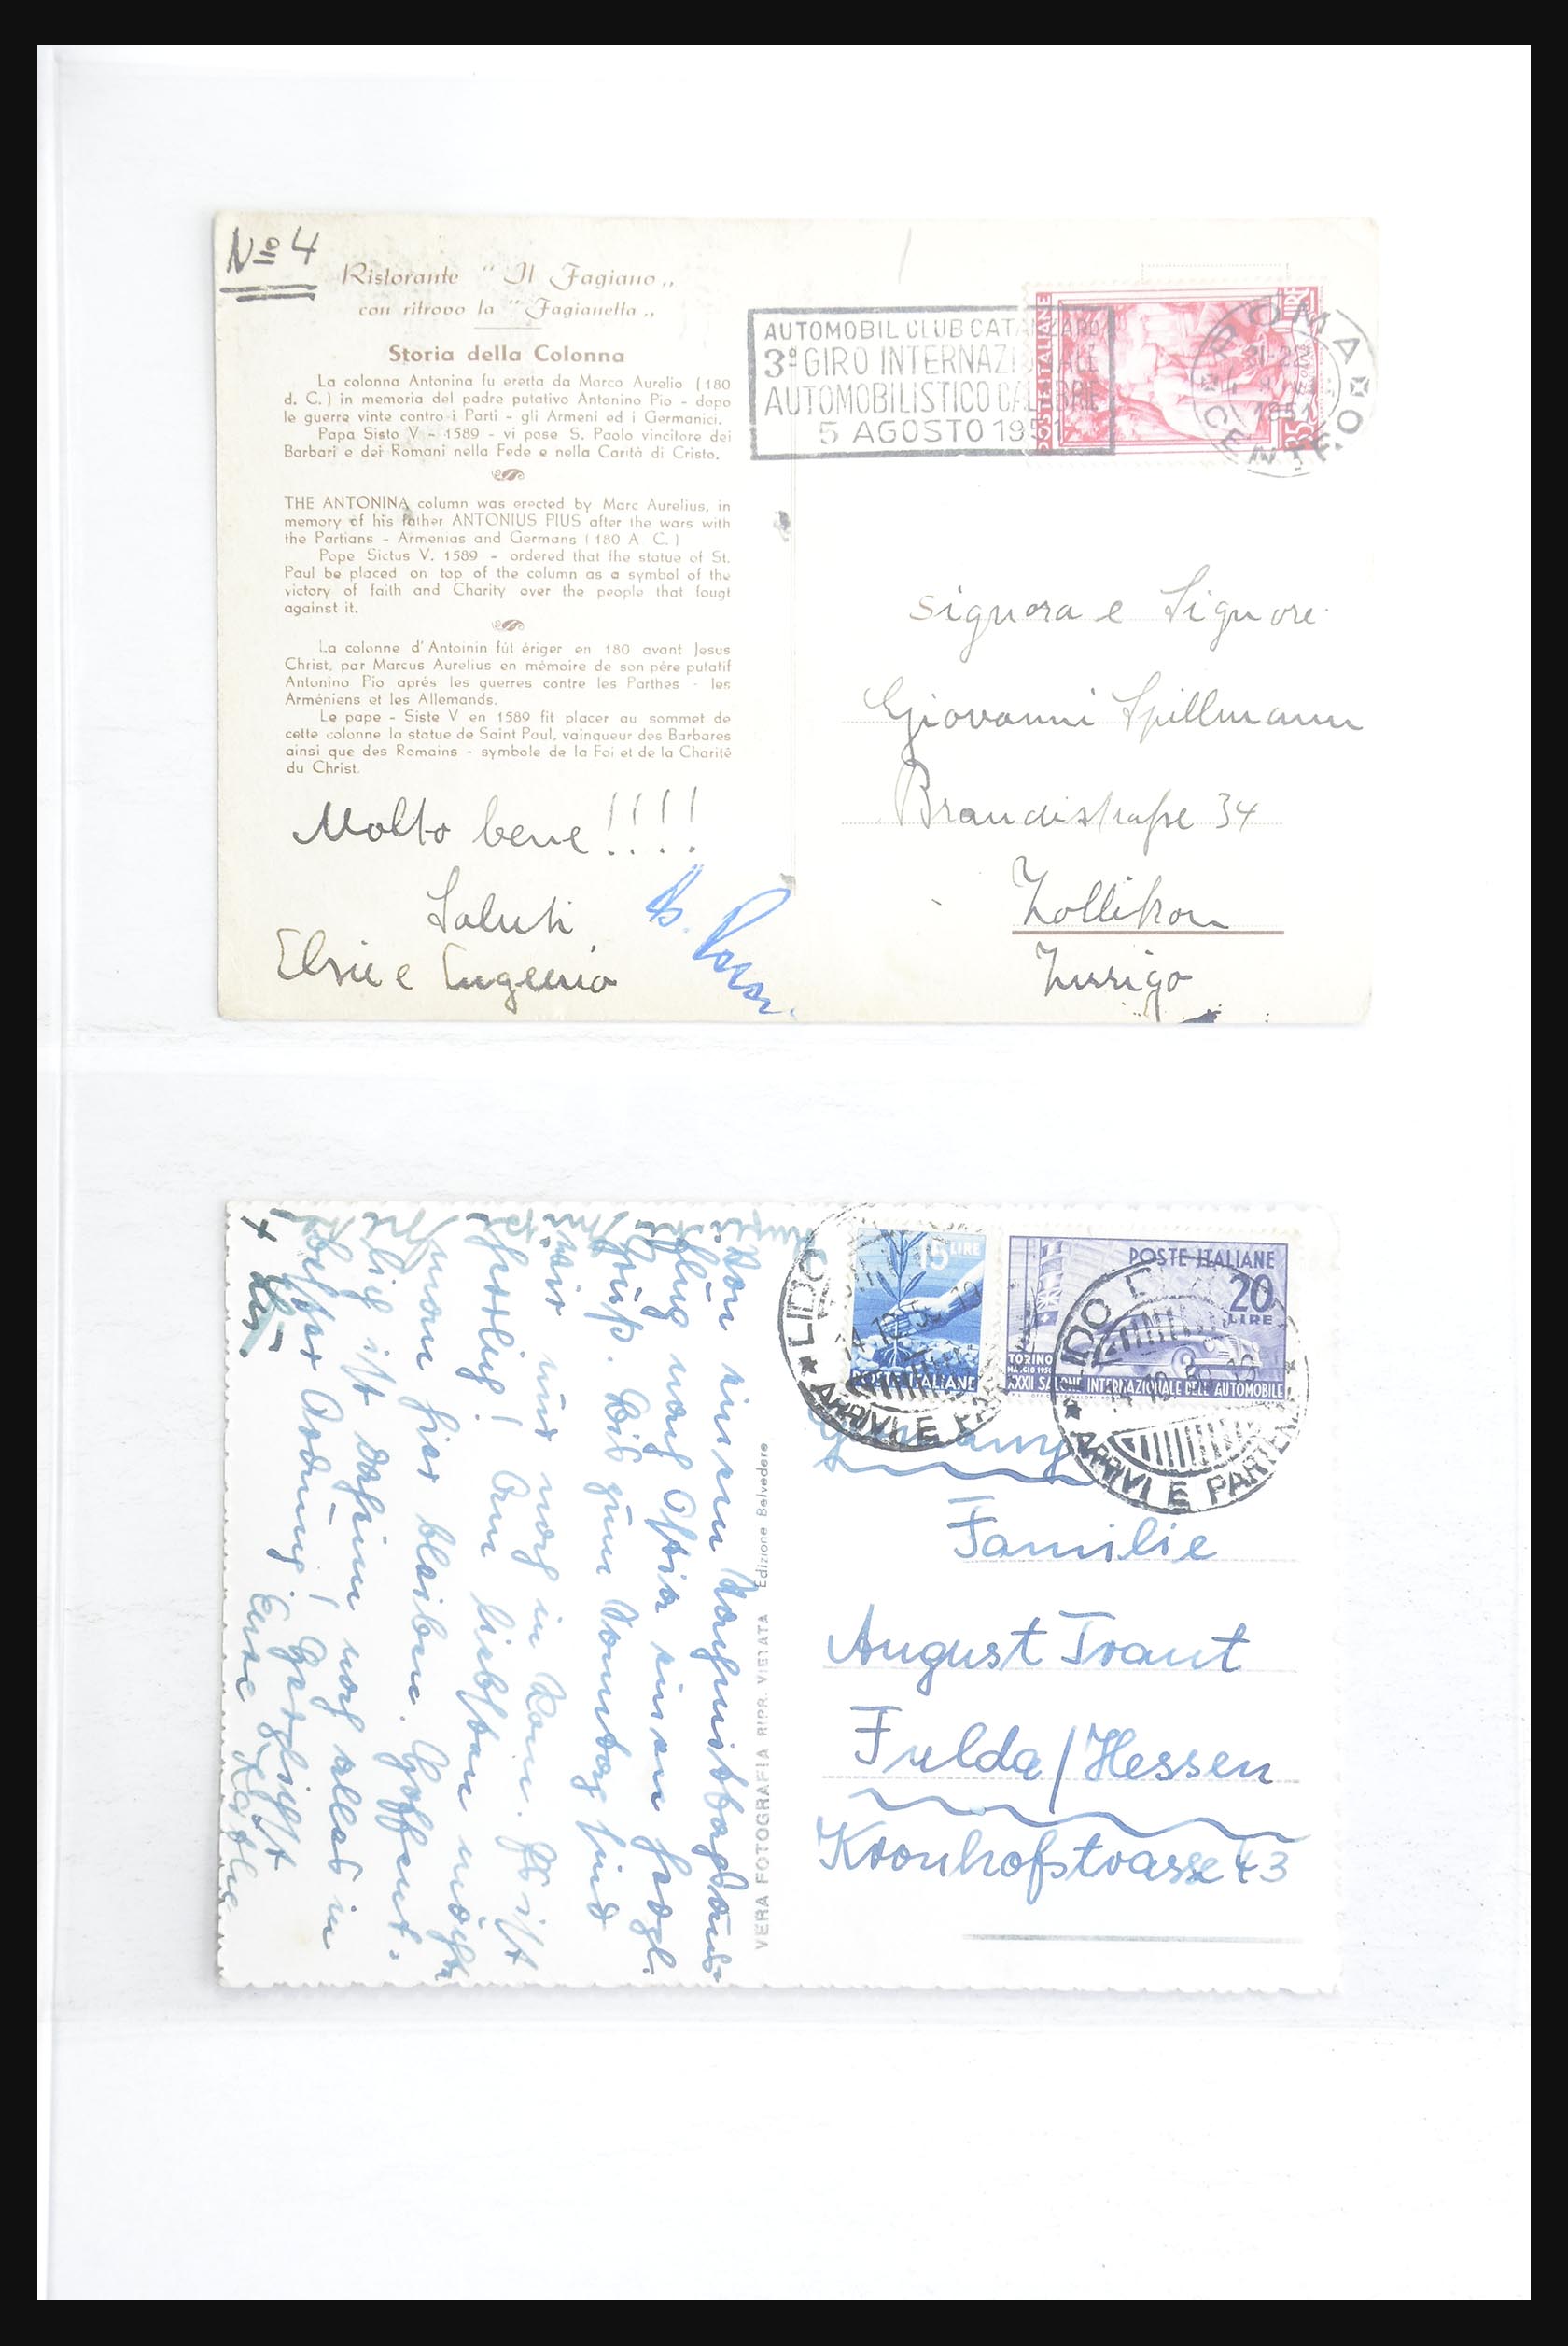 Nº 4
Ristorante “Il Fagiano„
con ritrovo la “Fagianella„
Storia della Colonna
La colonna Antonina fu eretta da Marco Aurelio (180
d. C.) in memoria del padre putativo Antonino Pio - dopo
le guerre vinte contro i Parti - gli Armeni ed i Germanici.
Papa Sisto V - 1589 - vi pose S. Paolo vincitore dei
Barbari e dei Romani nella Fede e nella Carità di Cristo.
THE ANTONINA column was erected by Marc Aurelius, in
memory of his father ANTONIUS PIUS after the wars with
the Partians - Armenias and Germans (180 A. C.)
Pope Sictus V. 1589 - ordered that the statue of St.
Paul be placed on top of the column as a symbol of the
victory of faith and Charity over the people that fougt
against it.
La colonne d'Antoinin fût ériger en 180 avant Jesus
Christ, par Marcus Aurelius en mémoire de son père putatif
Antonino Pio aprés les guerres contre les Parthes - les
Arméniens et les Allemands.
Le pape - Siste V en 1589 fit placer au sommet de
cette colonne la statue de Saint Paul, vainqueur des Barbares
ainsi que des Romains - symbole de la Foi et de la Charité
du Christ.
Molto bene!!!!
Saluti
Elsie e Eugenio
AUTOMOBIL CLUB CATANZARO
3º GIRO INTERNAZIONALE
AUTOMOBILISTICO CALABRIE
5 AGOSTO 1951
POSTE ITALIANE
LIRE 35
ROMA CENTRO
1951
Signora e Signore
Giovanni Spillmann
Brandisstraße 34
Zollikon
Zurrigo
15 LIRE
POSTE ITALIANE
POSTE ITALIANE
20
LIRE
TORINO
MAGGIO 1950
XXXII SALONE INTERNAZIONALE DELL'AUTOMOBILE
LIDO
ARRIVI E PARTENZE
LIDO
ARRIVI E PARTENZE
Germany
Familie
August Traut
Fulda/Hessen
Kronhofstrasse 43
VERA FOTOGRAFIA RIPR. VIETATA Edizione Belvedere
Von einem Nachmittagsaus-
flug nach Ostia einen herzl.
Gruß. Bis zum Sonntag sind
wir nur noch in Rom. Es ist
herrlich! Am liebsten möchte
man hier bleiben. Hoffent-
lich ist daheim noch alles in
bester Ordnung! Herzlichst
Eure Käthe